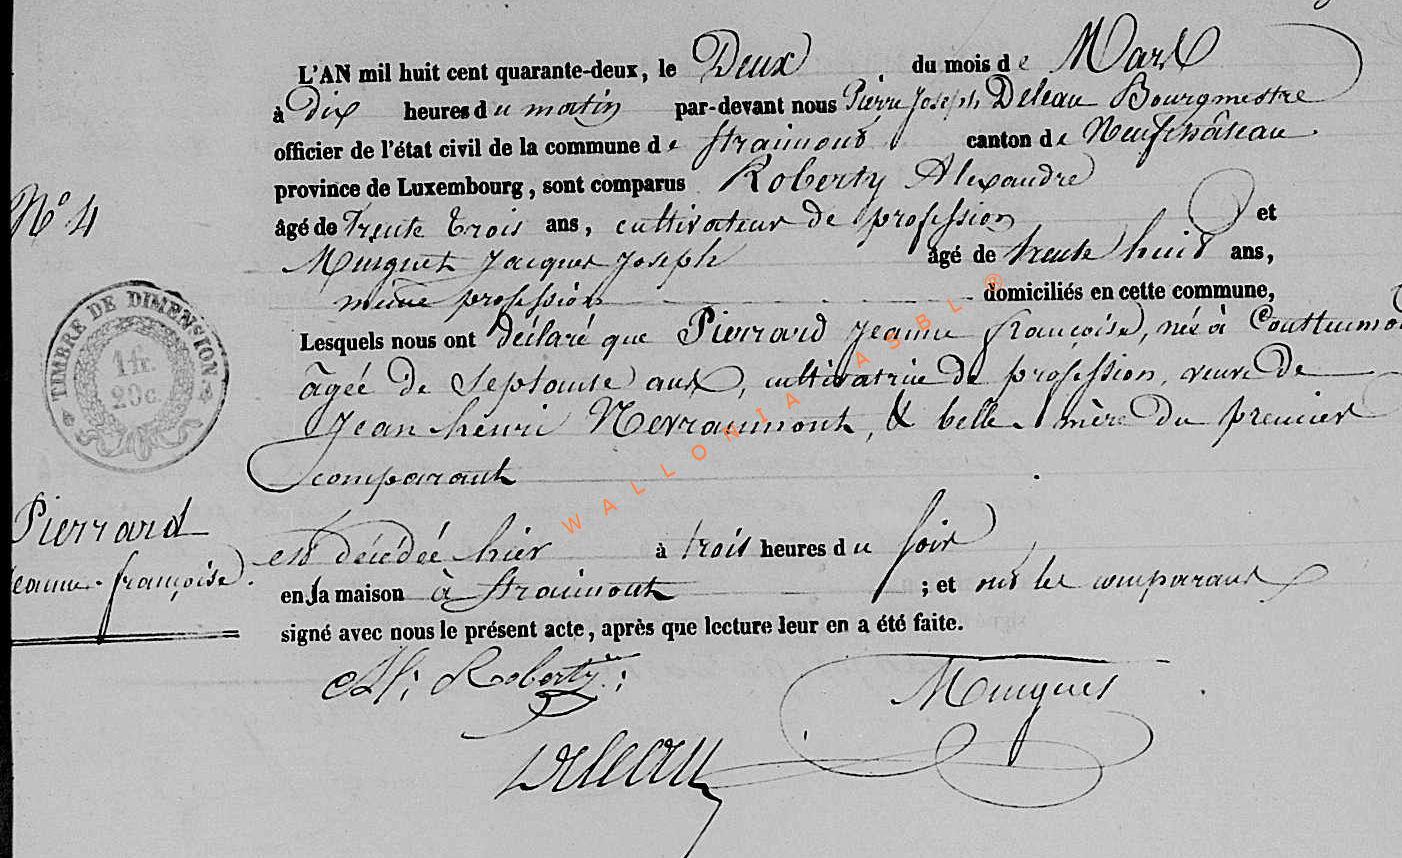 L'AN mil huit cent quarante-deux, le Deux du mois de Mars
à Dix heures du matin par-devant nous Pierre Joseph Deleau Bourgmestre
officier de l'état civil de la commune de Straimont canton de Neufchâteau
province de Luxembourg, sont comparus Roberty Alexandre
N° 4
âgé de trente trois ans, cultivateur de profession et
Muiguet Jacques Joseph âgé de trente huit ans,
même profession domiciliés en cette commune,
TIMBRE DE DIMENSION
1 fr.
20 c.
Lesquels nous ont déclaré que Pierrard Jeanne françoise, née à
âgée de Septante ans, cultivatrice de profession, veuve de
Jean henri Nevraumont, & belle mère du premier
comparant
Pierrard
Jeanne-françoise.
est décédée hier à trois heures du soir
en sa maison à Straimont ; et ont les comparans
signé avec nous le présent acte, après que lecture leur en a été faite.
Al: Roberty:
Deleau
WALLONIA ASBL ®